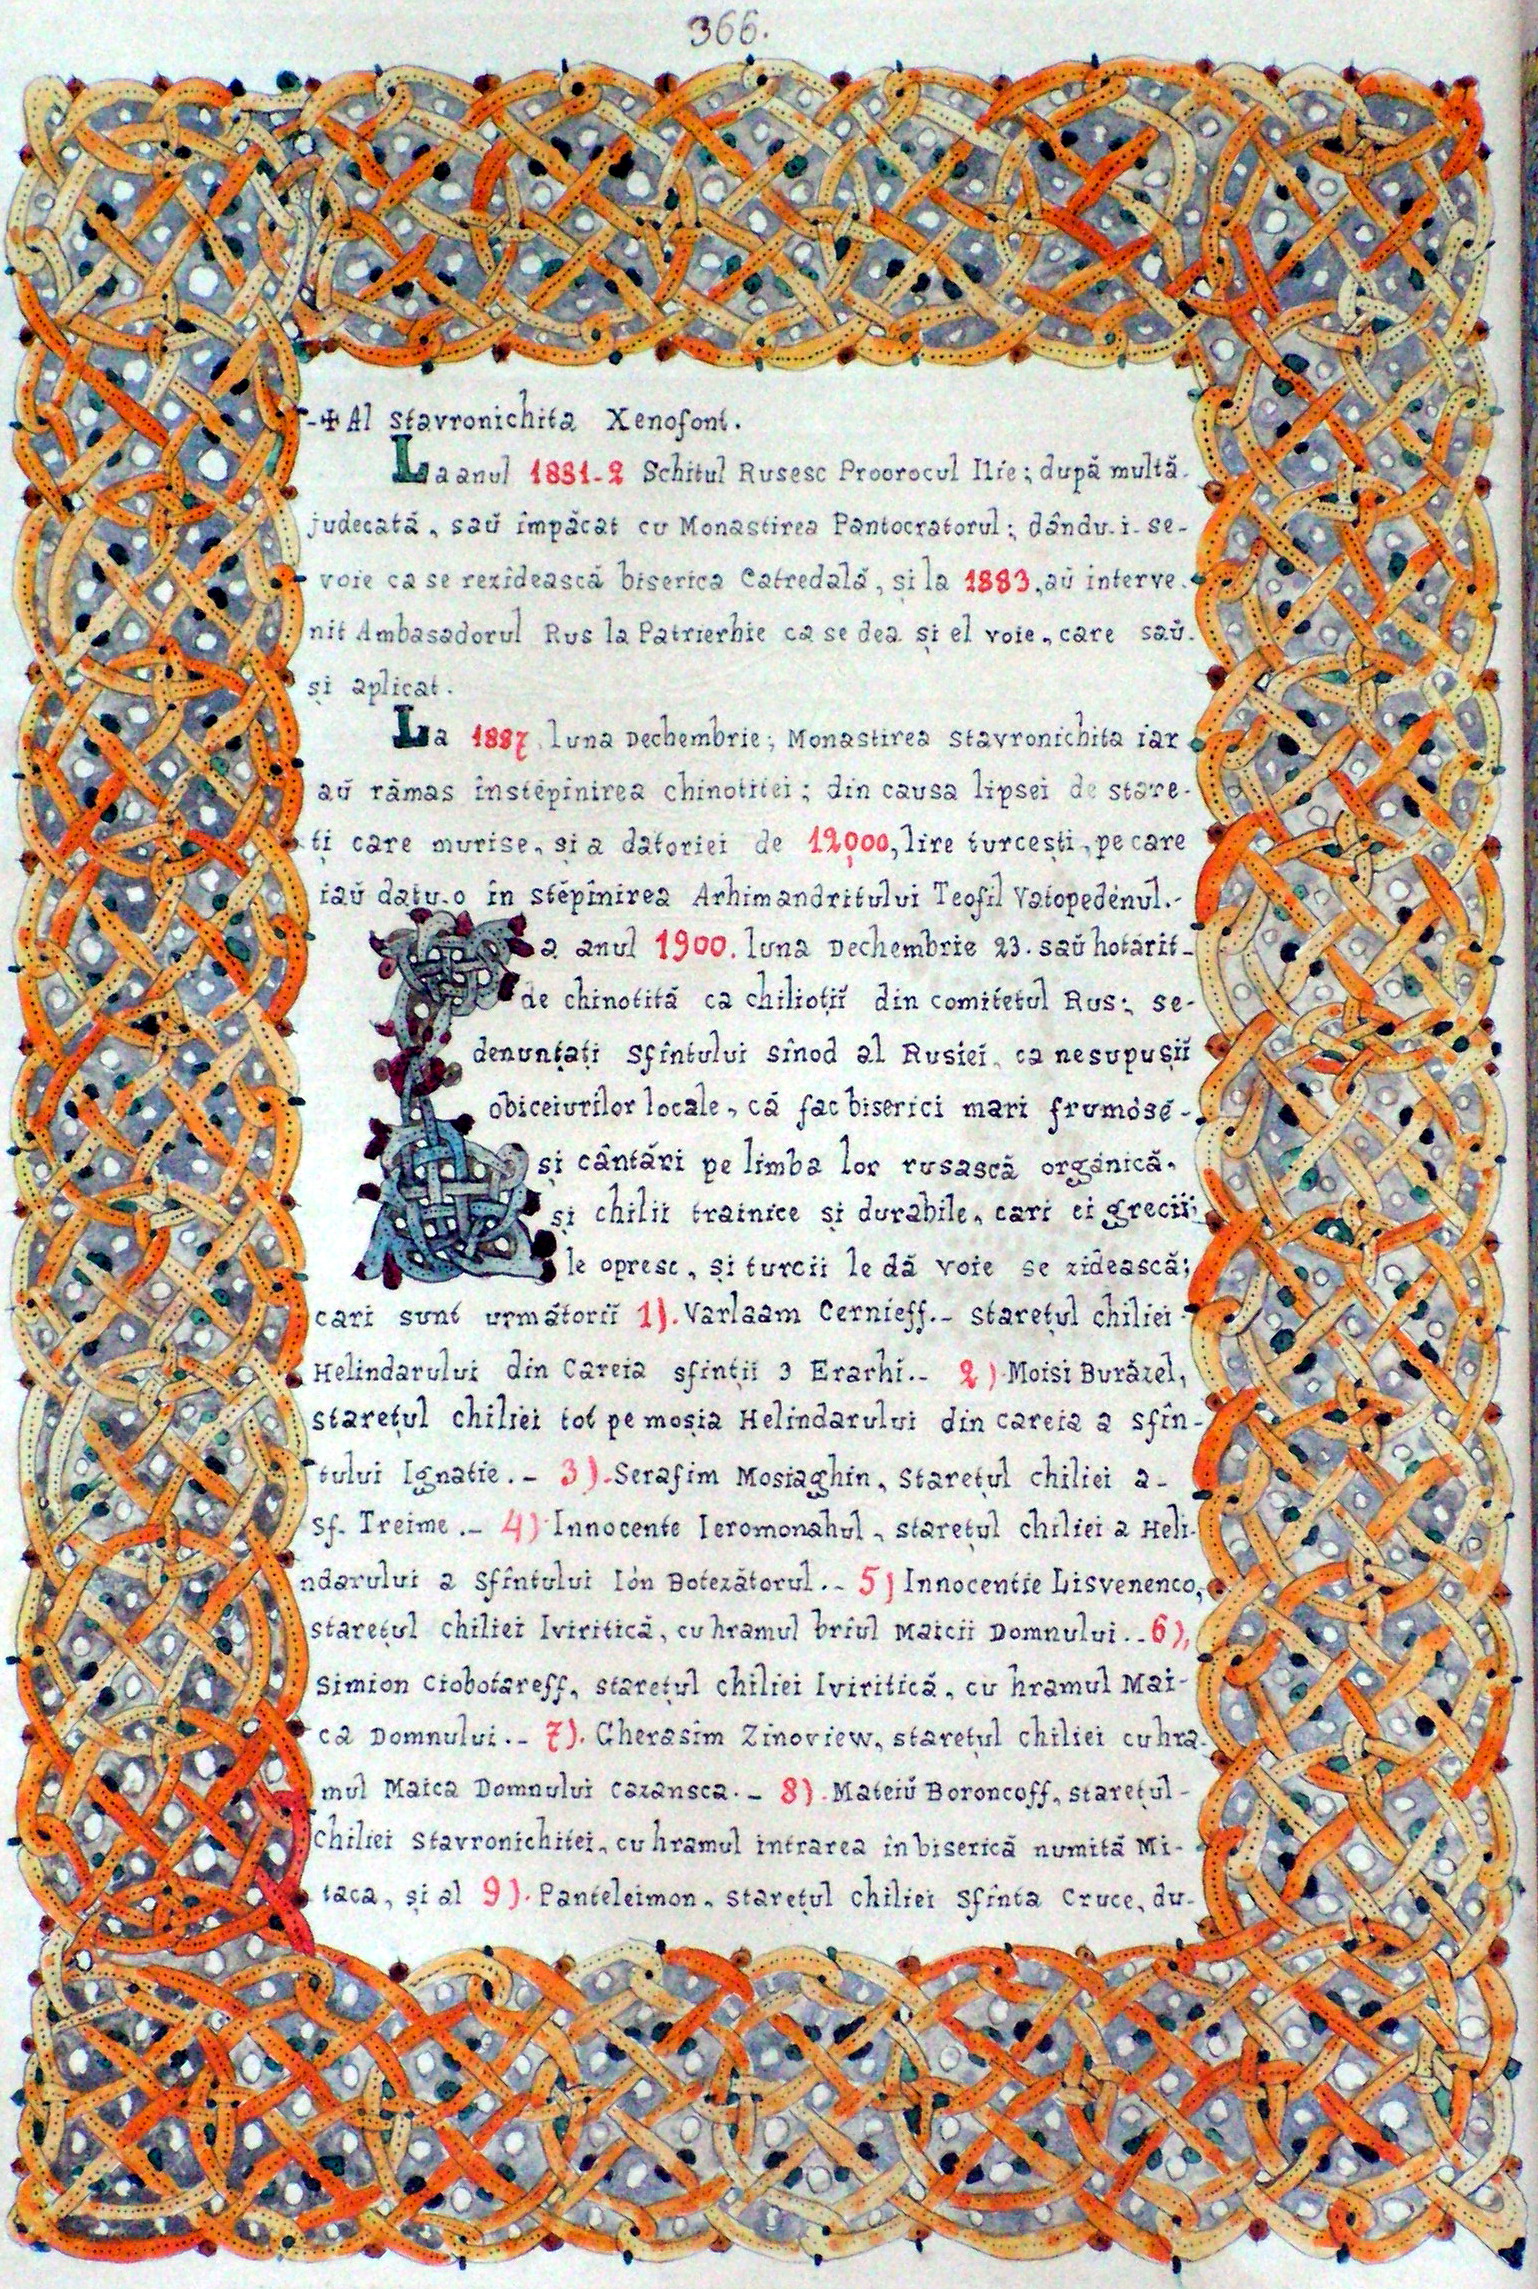 366.
-✠ Al Stavronichita Xenofont.
La anul 1881-2 Schitul Rusesc Proorocul Ilie; după multă-
judecată, saŭ împăcat cu Monastirea Pantocratorul; dându-i-se-
voie ca se rezidească biserica Catredală, și la 1883, aŭ interve-
nit Ambasadorul Rus la Patrierhie ca se dea și el voie, care saŭ-
și aplicat.
La 1887, luna Dechembrie; Monastirea Stavronichita iar
aŭ rămas înstĕpînirea chinotitei; din causa lipsei de stare-
ți care murise, și a datoriei de 12000, lire turcești, pe care
iaŭ datu-o în stĕpînirea Arhimandritului Teofil Vatopedénul.-
La anul 1900. luna Dechembrie 23. saŭ hotărit-
de chinotită ca chilioții din comitetul Rus; se-
denunțați Sfîntului Sînod al Rusiei, ca nesupușiĭ
obiceiurilor locale, că fac biserici mari frumósé-
și cântări pe limba lor rusască organică,
și chilii trainice și durabile, cari ei greciĭ;
le opresc, și turcii le dă voie se zidească;
cari sunt următoriĭ 1). Varlaam Cernieff.- starețul chiliei-
Helindarului din Careia sfinții 3 Erarhi.- 2) Moisi Burăzel,
starețul chiliei tot pe moșia Helindarului din careia a sfîn-
tului Ignatie.- 3).Serafim Mosiaghin, Starețul chiliei a-
Sf. Treime.- 4) Innocente Ieromonahul, starețul chiliei a Heli-
ndarului a Sfîntului Ión Botezătorul.- 5) Innocentie Lisvenenco,
starețul chiliei Iviritică, cu hramul brîul Maicii Domnului.. 6),
Simion Ciobotareff, starețul chiliei Iviritică, cu hramul Mai-
ca Domnului.- 7). Gherasim Zinoview, starețul chiliei cu hra-
mul Maica Domnului Cazansca.- 8). Mateiŭ Boroncoff, starețul-
Chiliei Stavronichitei, cu hramul intrarea în biserică numită Mi-
taca, și al 9). Panteleimon, starețul chiliei Sfînta Cruce, du-